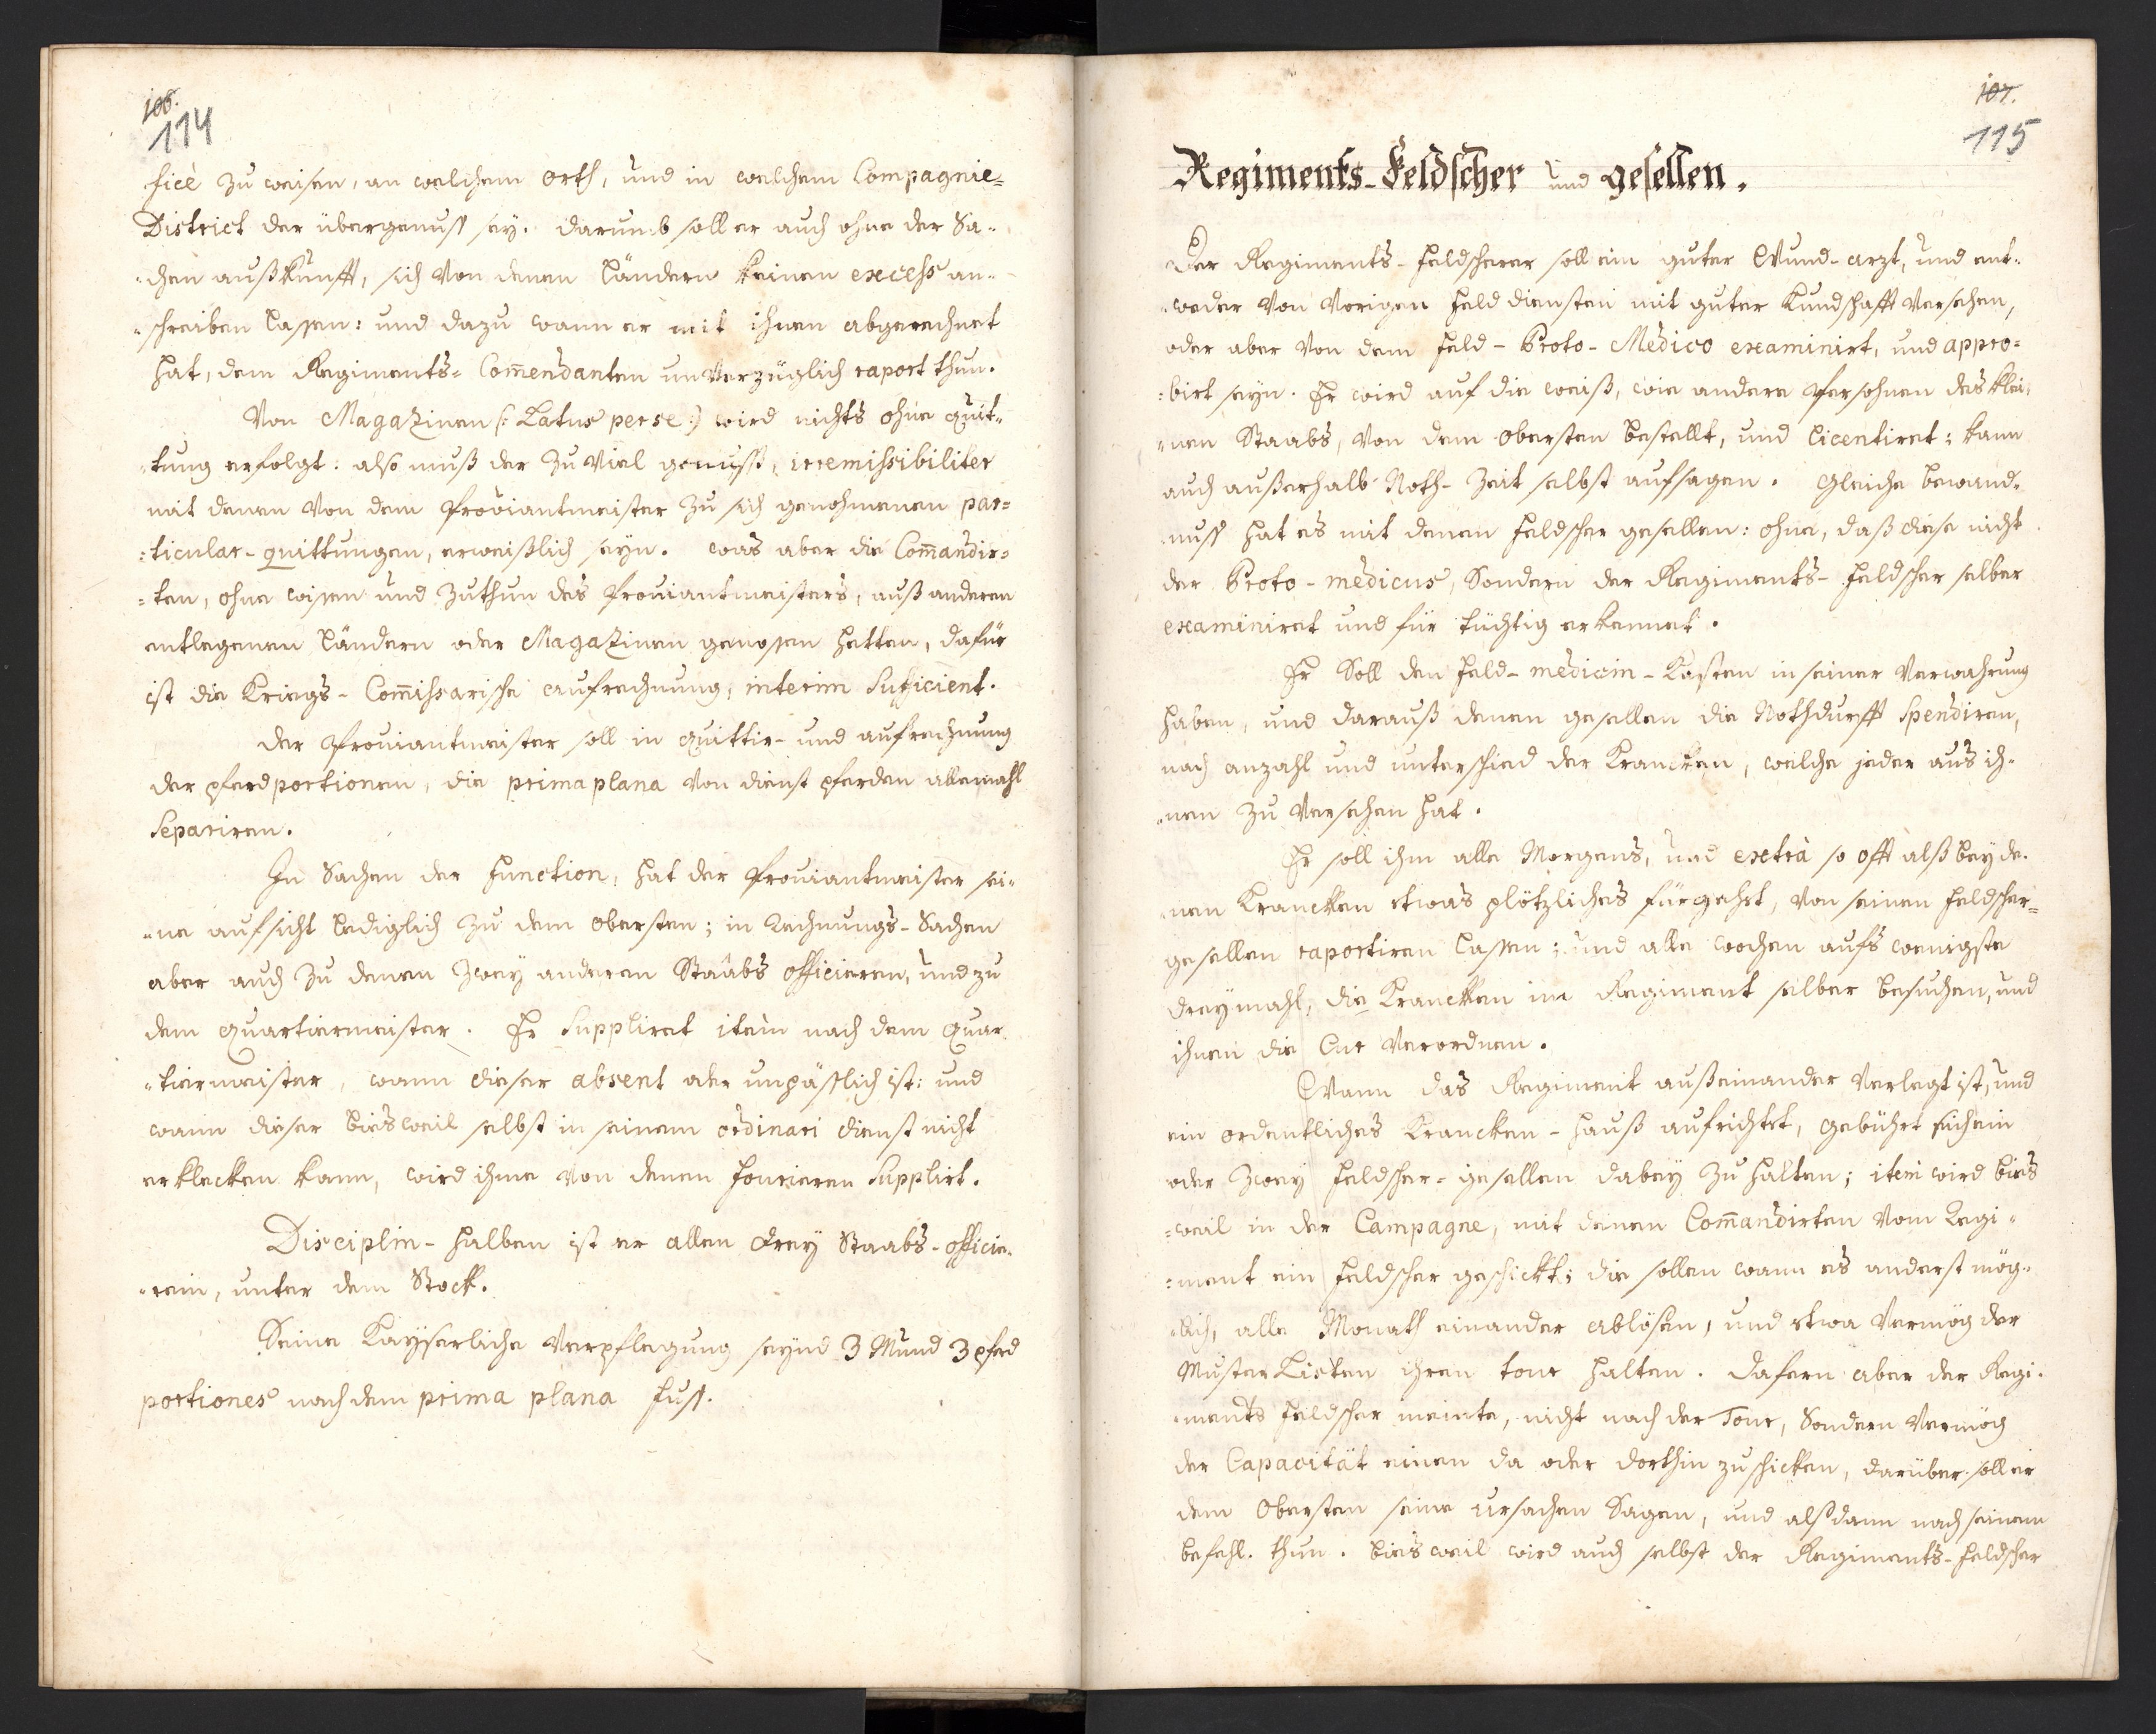 106.
114
ficè zu weisen, an welchem Orth, und in welchem Compagnie=
District der übergenuss sey. darumb soll er auch ohne der Sa-
chen außkunfft, sich von denen Ländern keinen excess an-
schreiben lassen: und dazu wann er mit ihnen abgerechnet
hat, dem Regiments= Com̄endanten unverzüglich raport thun.
Von Magazinen (: Latus per se :) wird nichts ohne quit-
tung erfolgt: also muß der zu viel genuss, irremissibiliter
mit denen von dem Proviantmeister zu sich genohmenen par=
=ticular-quittungen, erweißlich seyn. was aber die Com̄andir=
=ten, ohne wissen und zuthun des Proviantmeisters, auß anderen
entlegenen Ländern oder Magazinen genossen hetten, dafür
ist die Kriegs-Com̄issarische aufrechnung, interim Suficient.
der Proviantmeister soll in quittir- und aufrechnung
der pferdportionen, die prima plana von dienst pferden allemahl
Separiren.
In Sachen der Function, hat der Proviantmeister sei-
ne aufsicht lediglich zu dem Obersten; in Rechnungs-Sachen
aber auch zu denen zwey anderen Staabs officieren, und zu
dem Quartiermeister. Er Suppliret item nach dem Quar-
tiermeister, wann dieser absent oder unpässlich ist: und
wann dieser biesweil selbst in seinem ordinari dienst nicht
erklecken kann, wird ihme von denen Fourieren Supplirt.
Disciplin-halben ist er allen drey Staabs-officie-
ren, unter dem Stock.
Seine Kayserliche Verpflegung seynd 3 Mund 3 pferd
portiones nach dem prima plana fuss.
107.
115
Regiments-Feldscher und gesellen.
Der Regiments-Feldscherer soll ein guter Wund-arzt, und ent-
weder von vorigen Feld diensten mit guter Kundschafft versehen,
oder aber von dem Feld-Proto-Medico examinirt, und appro=
=birt seyn. Er wird auf die weiß, wie andere Persohnen des klei-
nen Staabs, von dem Obersten bestellt, und licentiret: kann
auch außerhalb Noth-Zeit selbst aufsagen. Gleiche bewand-
nuss hat es mit denen Feldscher gesellen: ohne, daß diese nicht
der Proto-medicus, Sondern der Regiments-Feldscher selber
examiniret und für tüchtig erkennet.
Er Soll den Feld-medicin-Kasten in seiner Verwahrung
haben, und darauß denen gesellen die Nothdurfft Spendiren,
nach anzahl und unterschied der Krancken, welche jeder aus ih-
nen zu versehen hat.
Er soll ihm alle Morgens, und extrà so offt alß bey de-
nen Krancken etwas plötzliches fürgehet, von seinen Feldscher=
gesellen raportiren lassen; und alle wochen aufs wenigste
dreymahl, die Krancken im Regiment selber besuchen, und
ihnen die Cur verordnen.
Wann das Regiment außeinander verlegt ist, und
ein ordentliches Krancken-Hauß aufrichtet, gebührt sich ein
oder zwey Feldscher=gesellen dabey zu halten; item wird bies
=weil in der Campagne, mit denen Com̄andirten vom Regi-
=ment ein Feldscher geschickt; die sollen wann es anderst mög-
lich, alle Monath einander ablösen, und etwa vermög der
Muster Listen ihren tour halten. dafern aber der Regi-
ments Feldscher meinte, nicht nach der Tour, Sondern vermög
der Capacität einen da oder dorthin zu schicken, darüber soll er
dem Obersten seine ursachen Sagen, und alßdann nach seinem
befehl thun. biesweil wird auch selbst der Regiments-Feldscher